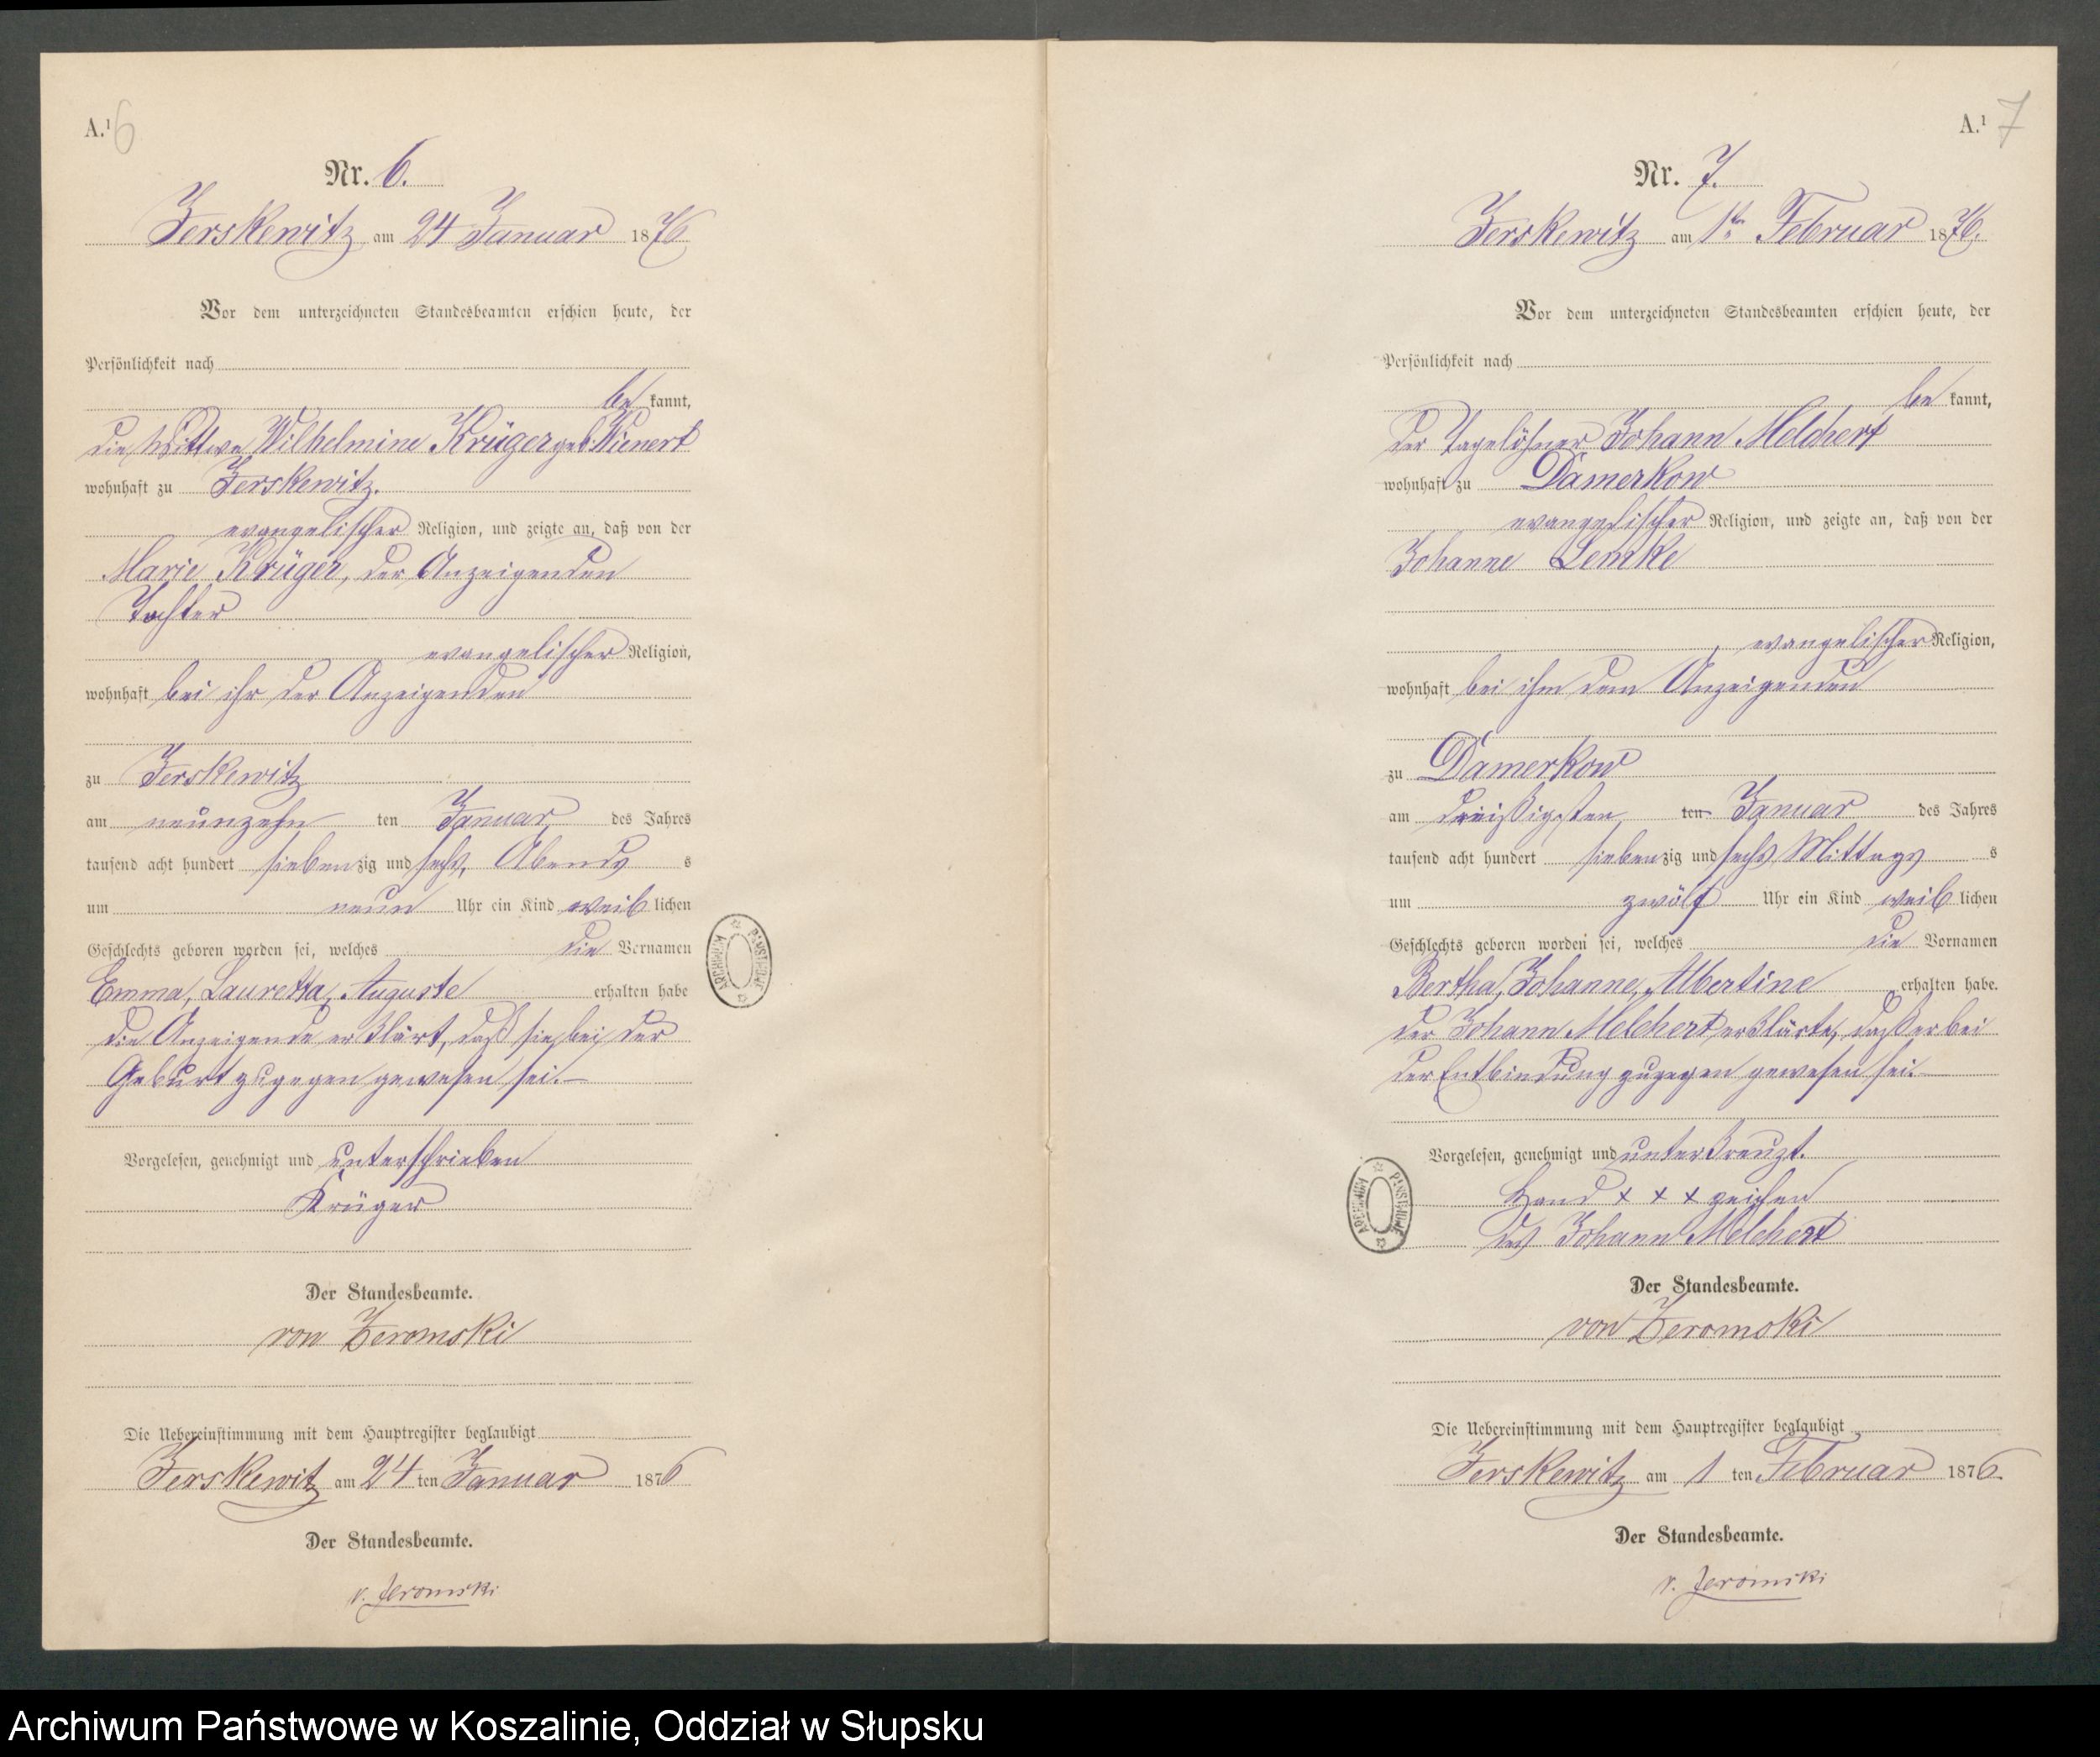 A.¹ 6
Nr. 6.
Jerskewitz am 24 Januar 1876
Vor dem unterzeichneten Standesbeamten erschien heute, der
Persönlichkeit nach
be kannt,
die Wittwe Wilhelmine Krüger geb. Wienert
wohnhaft zu Jerskewitz.
evangelischer Religion, und zeigte an, daß von der
Marie Krüger, der Anzeigenden
Tochter
evangelischer Religion,
wohnhaft bei ihr der Anzeigenden
zu Jerskewitz
am neunzehn ten Januar des Jahres
tausend acht hundert siebenzig und sechs, Abends s
um neun Uhr ein Kind weiblichen
Geschlechts geboren worden sei, welches die Vornamen
Emma, Lauretta, Auguste erhalten habe
die Anzeigende erklärt, daß sie bei der
Geburt zugegen gewesen sei.—
Vorgelesen, genehmigt und unterschrieben
Krüger
Der Standesbeamte.
von Zeromski
Die Uebereinstimmung mit dem Hauptregister beglaubigt
Jerskewitz am 24 ten Januar 1876
Der Standesbeamte.
v. Zeromski
ARCHIWUM PAŃSTWOWE
A.¹ 7
Nr. 7.
Jerskewitz am 1ten Februar 1876.
Vor dem unterzeichneten Standesbeamten erschien heute, der
Persönlichkeit nach
be kannt,
der Tagelöhner Johann Melchert
wohnhaft zu Damerkow
evangelischer Religion, und zeigte an, daß von der
Johanne Lemke
evangelischer Religion,
wohnhaft bei ihm dem Anzeigenden
zu Damerkow
am dreißigsten ten Januar des Jahres
tausend acht hundert siebenzig und sechs Mittags s
um zwölf Uhr ein Kind weiblichen
Geschlechts geboren worden sei, welches die Vornamen
Bertha, Johanne, Albertine erhalten habe.
der Johann Melchert erklärte, daß er bei
der Entbindung zugegen gewesen sei.—
Vorgelesen, genehmigt und unterkreuzt.
Hand x x x zeichen
des Johann Melchert
Der Standesbeamte.
von Zeromski
Die Uebereinstimmung mit dem Hauptregister beglaubigt
Jerskewitz am 1 ten Februar 1876
Der Standesbeamte.
v. Zeromski
ARCHIWUM PAŃSTWOWE
Archiwum Państwowe w Koszalinie, Oddział w Słupsku